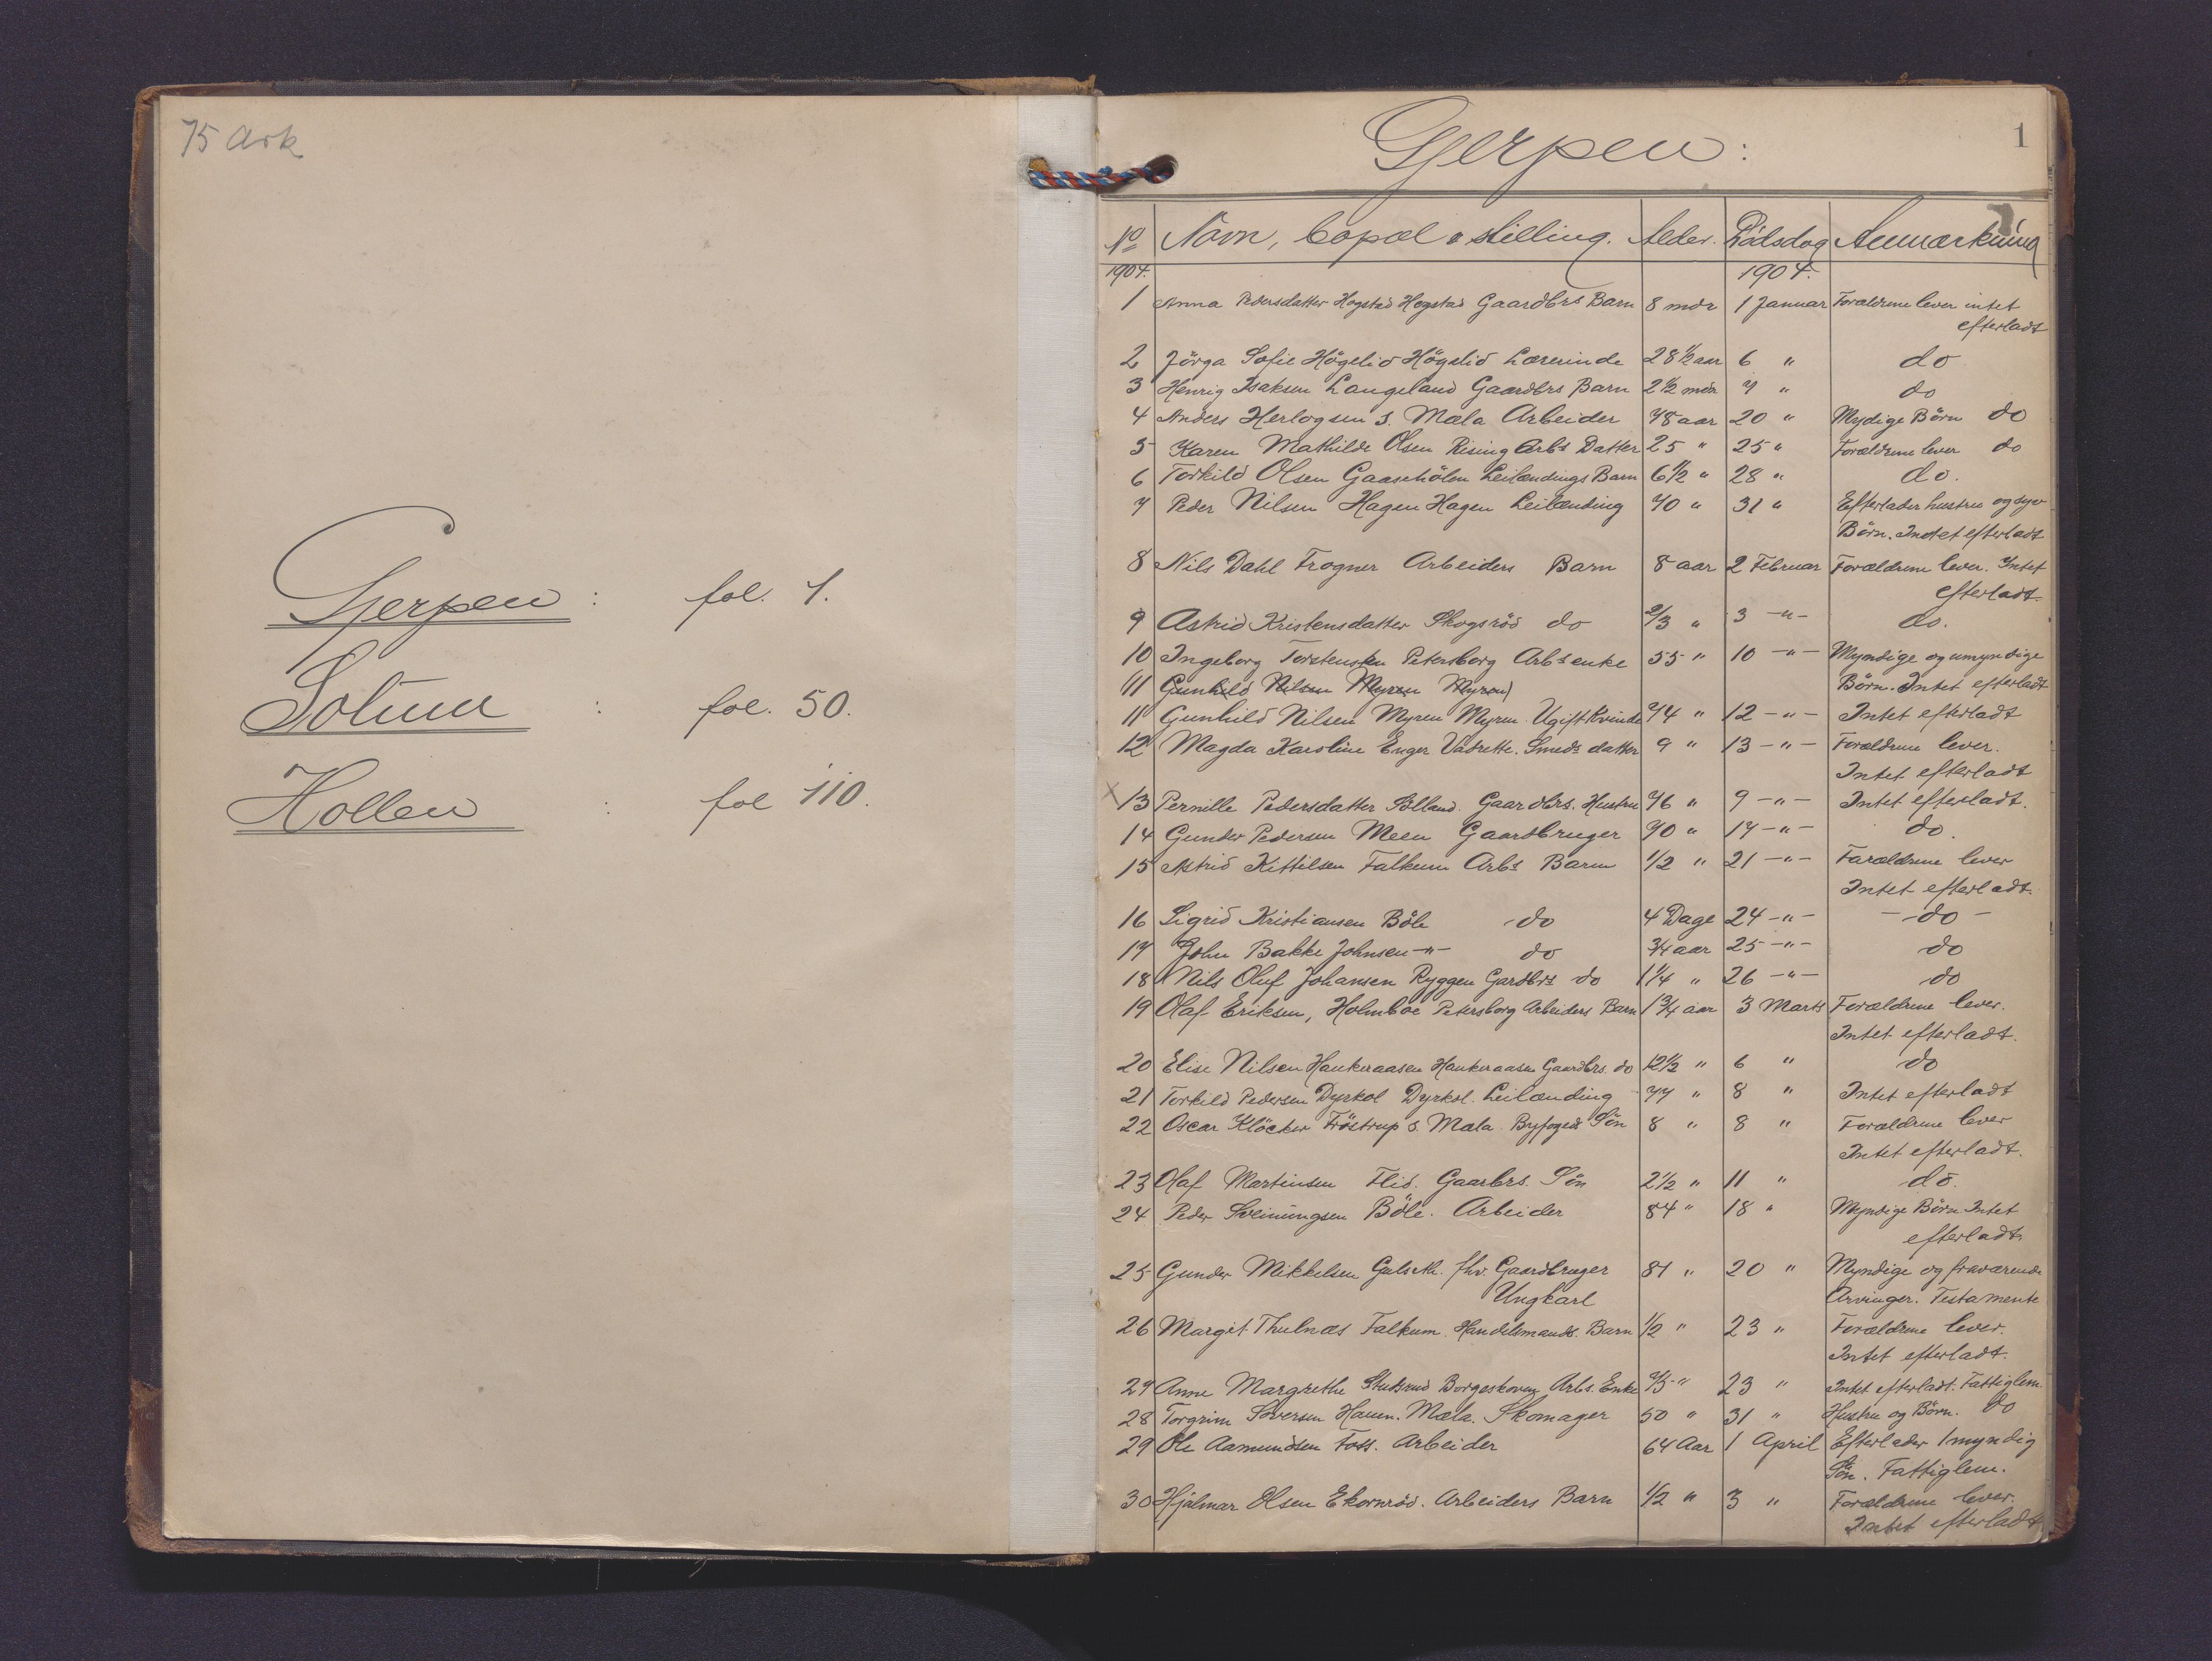 75 Ark
Gjerpen : fol. 1.
Solum : fol. 50.
Hollen : fol 110.
Gjerpen:
1
No Navn, bopæl & stilling. Alder. Dødsdag Anmærkning
1904. 1904.
1 Anna Pedersdatter Hogstad Hogstad Gaardbrs Barn 8 mdr 1 Januar Forældrene lever intet
efterladt
2 Jörga Sofie Högelid Högelid Lærerinde 28 1/2 aar 6 " do
3 Henrig Isaksen Langeland Gaardbrs Barn 2 1/2 mdr 7 " do
4 Anders Herlogsen s. Mæla Arbeider 78 aar 20 " Mydige Börn do
5 Karen Mathilde Olsen Rising Arbs Datter 25 " 25 " Forældrene lever do
6 Torkild Olsen Gaasehölen Leilændings Barn 6 1/2 " 28 " do.
7 Peder Nilsen Hagen Hagen Leilænding 70 " 31 " Efterlader hustru og syv
Börn. Indet efterladt
8 Nils Dahl Frogner Arbeiders Barn 8 aar 2 Februar Forældrene lever. Intet
efterladt.
9 Astrid Kristensdatter Skogsröd do 2/3 " 3 -"- do.
10 Ingeborg Torstensen Petersborg Arbs enke 55 " 10 -"- Myndige og umyndige
11 Gunhild Nilsen Myren Myren) Börn. Intet efterladt
11 Gunhild Nilsen Myren Myren Ugift Kvinde 74 " 12 -"- Intet efterladt
12 Magda Karoline Enger Vadrette. Smeds datter 9 " 13 -"- Forældrene lever.
Intet efterladt
x 13 Pernille Pedersdatter Sölland. Gaardbrs. Hustru 76 " 9 -"- Intet efterladt.
14 Gunder Pedersen Meen Gaardbruger 70 " 17 -"- do.
15 Astrid Kittilsen Falkum Arbs Barn 1/2 " 21 -"- Forældrene lever
Intet efterladt.
16 Sigrid Kristiansen Böle do 4 Dage 24 -"- - do -
17 John Bakke Johnsen -"- do 3/4 aar 25 -"- do
18 Nils Oluf Johansen Ryggen Gardbrs do 1 1/4 " 26 -"- do
19 Olaf Eriksen, Holmboe Petersborg Arbeiders Barn 1 3/4 aar 3 Marts Forældrene lever.
Intet efterladt.
20 Elise Nilsen Haukeraasen Haukeraasen Gaardbrs. do 12 1/2 " 6 " do
21 Torkild Pedersen Dyrkol Dyrkol. Leilænding 77 " 8 " Intet efterladt
22 Oscar Klöcker Fröstrup s. Mæla. Byfoged Sön 8 " 8 " Forældrene lever
Intet efterladt.
23 Olaf Martinsen Flid. Gaarbrs. Sön 2 1/2 " 11 " do.
24 Peder Sveinungsen Böle. Arbeider 84 " 18 " Myndige Börn Intet
efterladt.
25 Gunder Mikkelsen Gulseth. fhv. Gaardbruger 81 " 20 " Myndige og fraværende
Ungkarl Arvinger. Testamente
26 Margit Thulnæs Falkum. Handelsmands. Barn 1/2 " 23 " Forældrene lever.
Intet efterladt.
27 Anne Margrethe Borgeskoven Arbs. Enke 23 " Intet efterladt. Fattiglem.
28 Torgrim Halvorsen Mæla. Skomager 50 " 31 " Hustru og Börn. do
29 Ole Aamundsen Foss. Arbeider 64 Aar 1 April Efterlader 1 myndig
Sön. Fattiglem.
30 Hjalmar Olsen Ekornröd. Arbeiders Barn 1/2 " 3 " Forældrene lever.
Intet efterladt